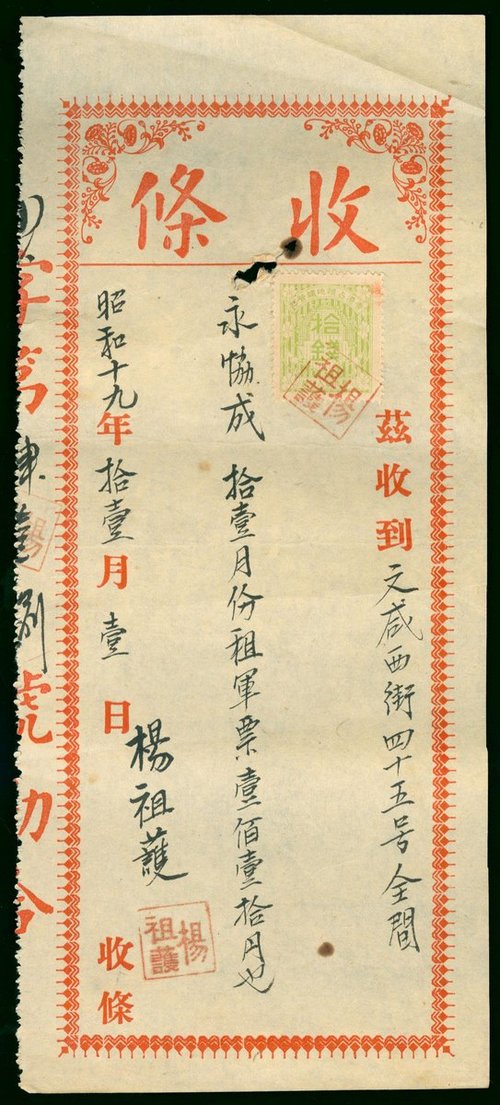 收條
茲收到文咸西街四十五号全間
拾錢
楊祖護
永協成 拾壹月份租軍票壹佰壹拾円也
昭和十九年拾壹月壹日
楊祖護
楊祖護
收條
字第
號